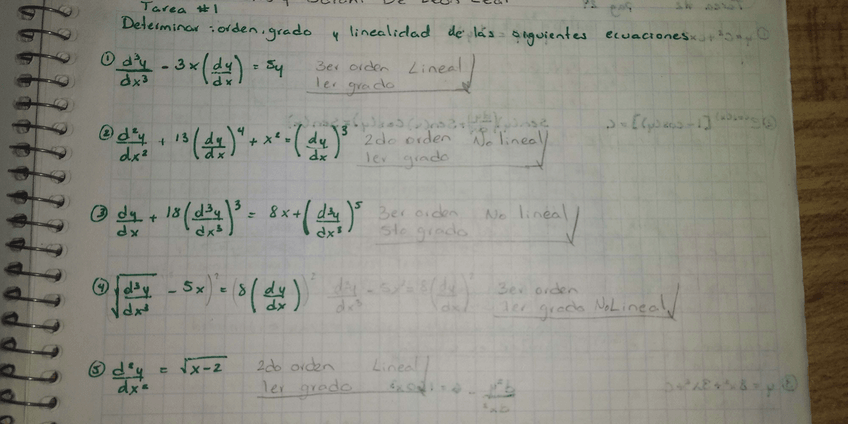 Tarea #1
Determinar : orden, grado y linealidad de las siguientes ecuaciones
① d³y/dx³ - 3x(dy/dx) = 5y 3er orden Lineal
1er grado
② d²y/dx² + 13(dy/dx)⁴ + x² = (dy/dx)³ 2do orden No lineal
1er grado
③ dy/dx + 18(d³y/dx³)³ = 8x + (d³y/dx³)⁵ 3er orden No lineal
5to grado
④ √(d³y/dx³) - 5x)² = (8(dy/dx))² d³y/dx³ - 5x = 8(dy/dx)² 3er orden
1er grado No Lineal
⑤ d²y/dx² = √(x-2) 2do orden Lineal
1er grado